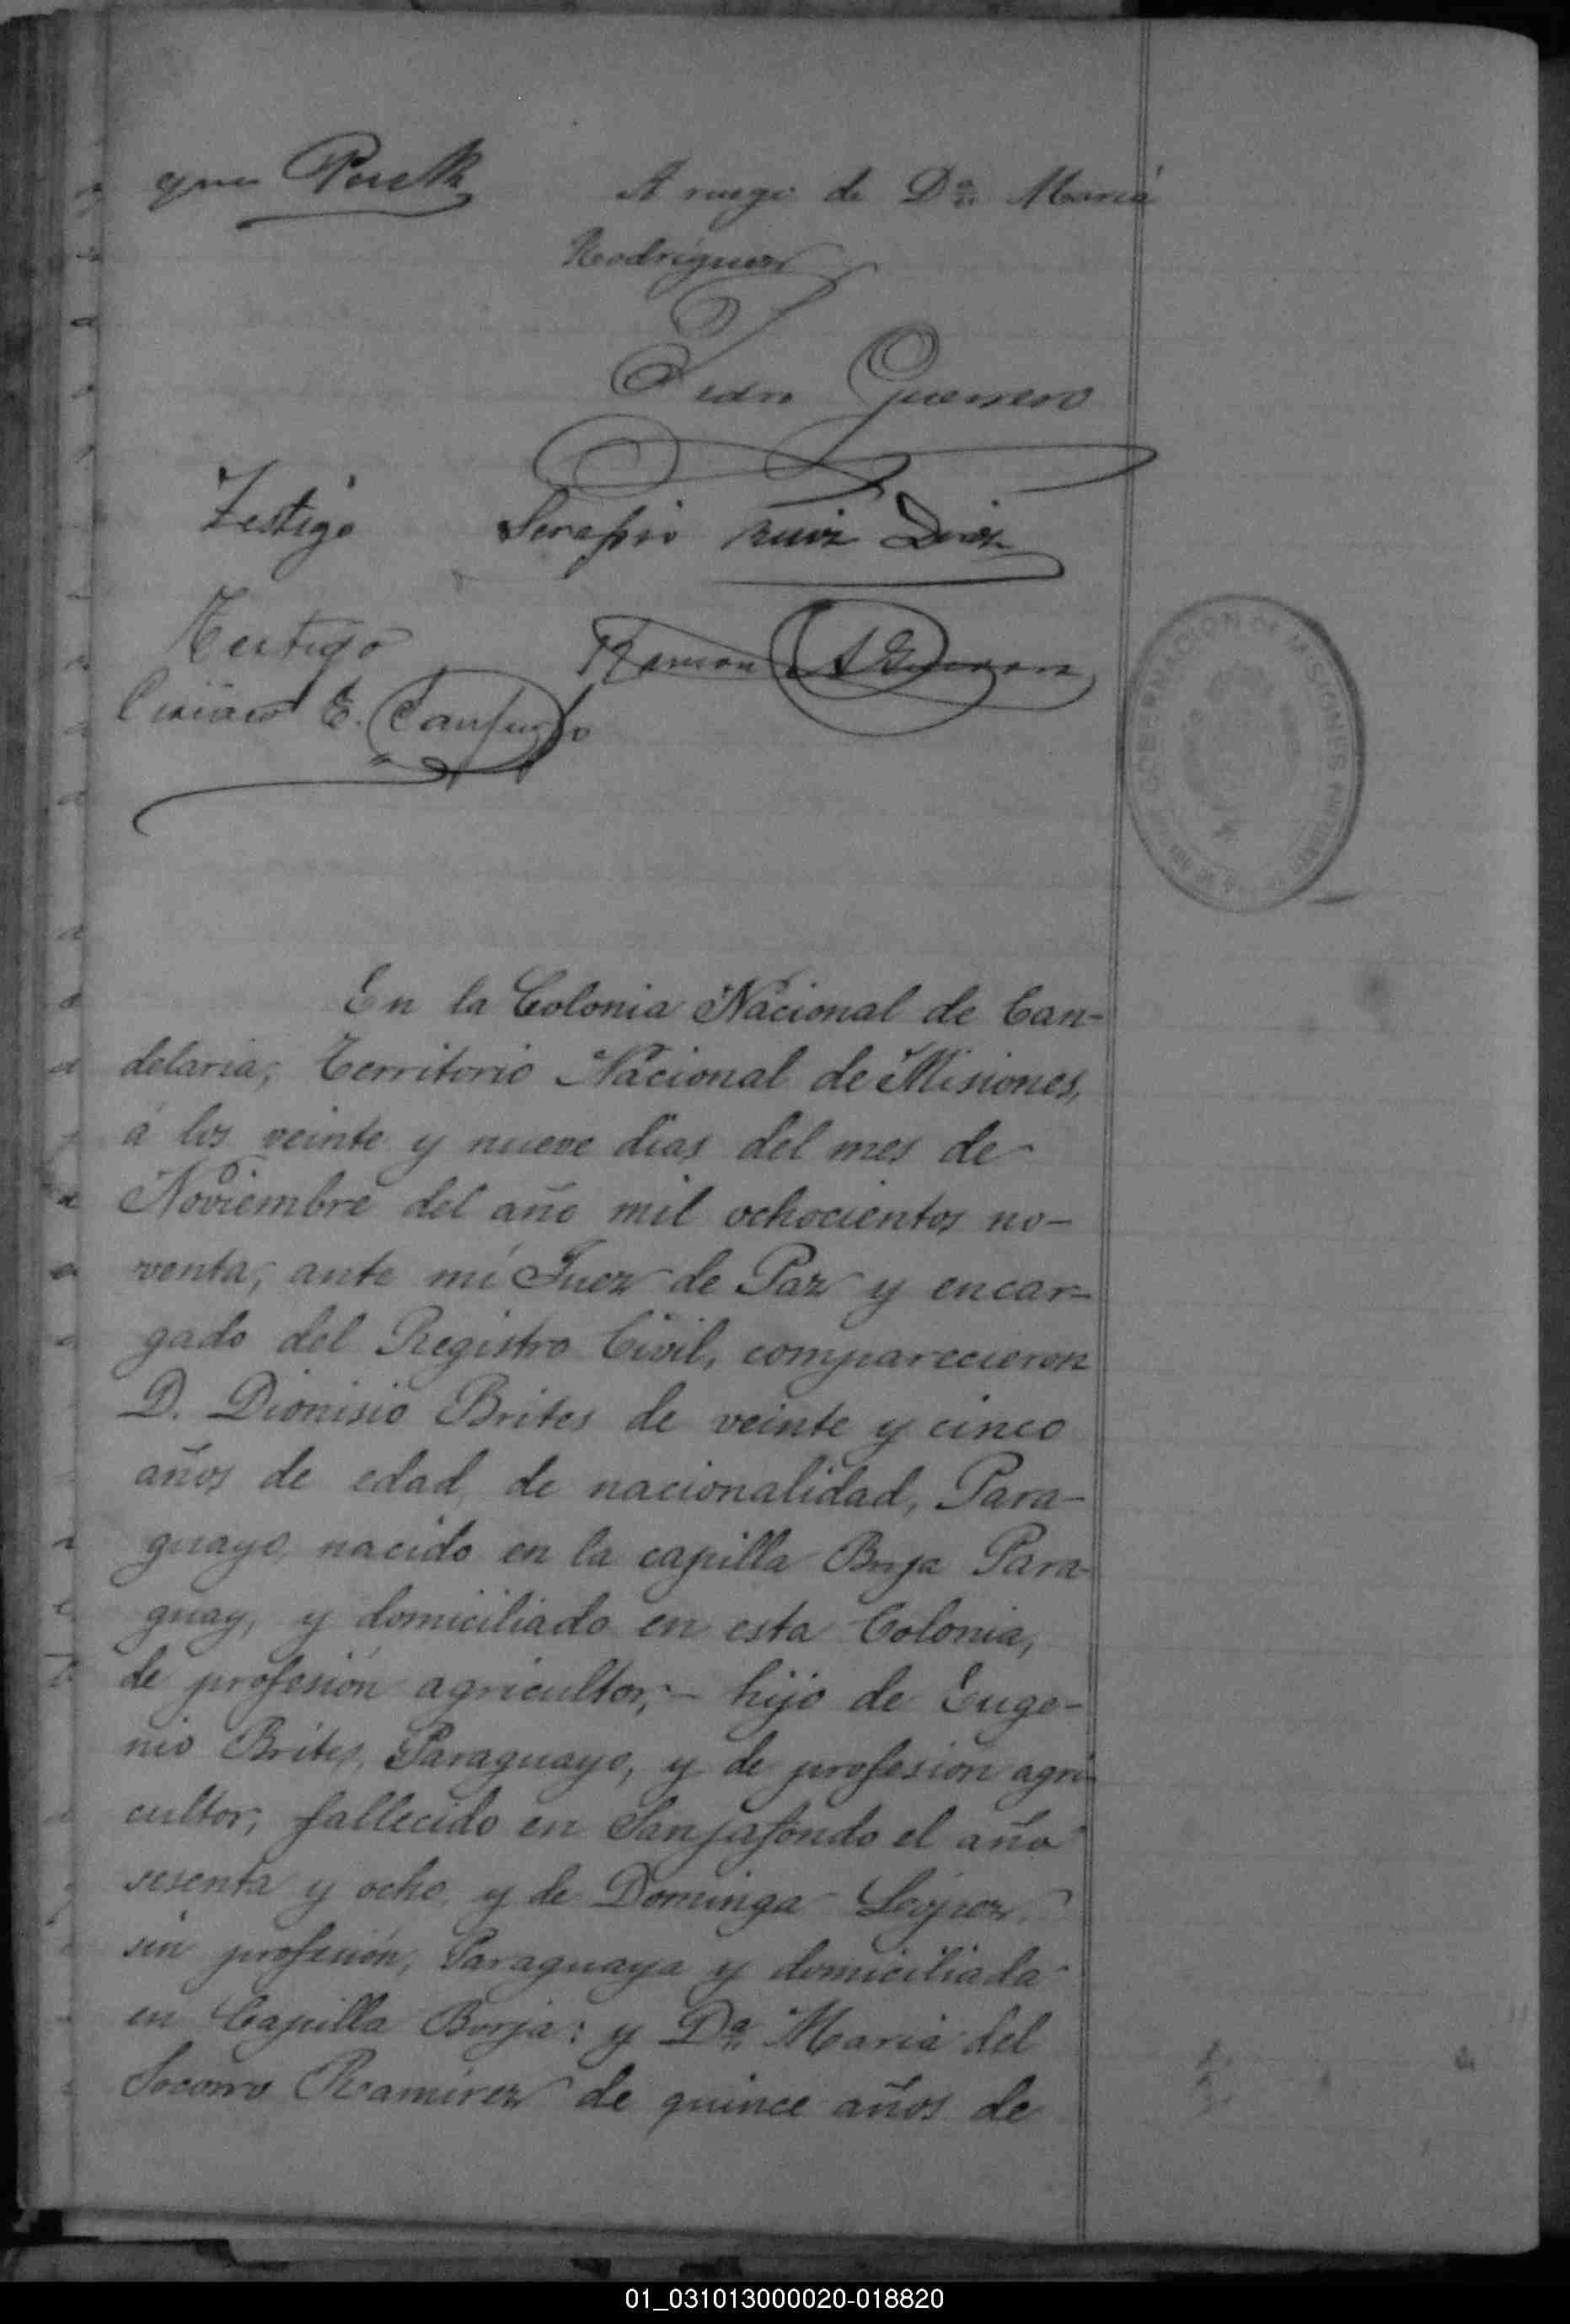 A ruego de Dª María
Rodriguez
Pedro Guerrero
Testigo Serapio Ruiz Diaz
Testigo Ramon
E.
GOBERNACION DE MISIONES
En la Colonia Nacional de Can-
delaria, Territorio Nacional de Misiones,
á los veinte y nueve dias del mes de
Noviembre del año mil ochocientos no-
venta, ante mí Juez de Paz y encar-
gado del Registro Civil, comparecieron
D. Dionisio Brites de veinte y cinco
años de edad, de nacionalidad, Para-
guayo, nacido en la capilla Borja Para-
guay, y domiciliado en esta Colonia,
de profesión agricultor,- hijo de Euge-
nio Brites, Paraguayo, y de profesion agri-
cultor, fallecido en Sanjafondo el año
sesenta y ocho, y de Dominga López,
sin profesión, Paraguaya y domiciliada
en Capilla Borja: y Dª María del
Socorro Ramírez de quince años de
01_031013000020-018820